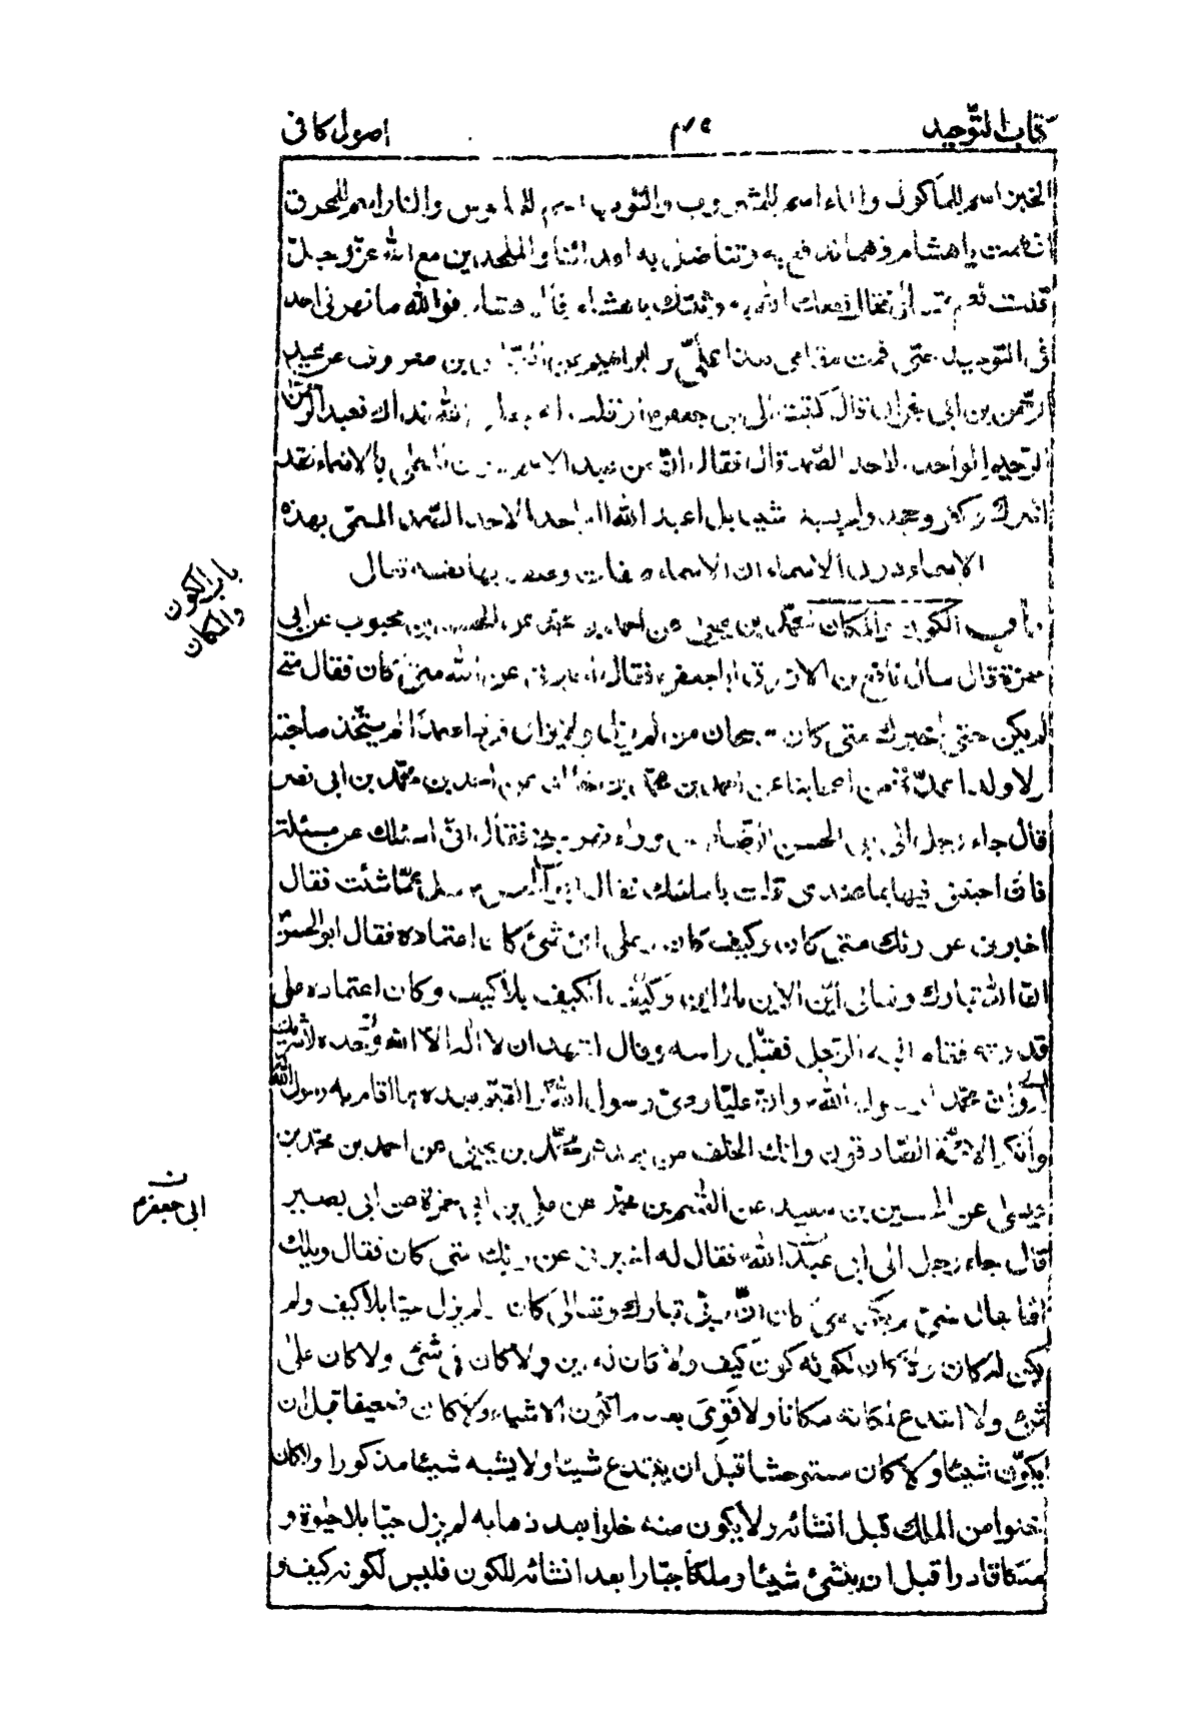 كتاب التوحيد
اصول كافى
الخبز اسم للمأكول والماء اسم للمشروب والثوب اسم للملبوس والنار اسم للمحرق
افهمت يا هشام فهما تدفع به وتناضل به اعدائنا والملحدين مع الله عز وجل
قلت نعم فقال نفعك الله به وثبتك يا هشام قال هشام فوالله ما قهرنى احد
فى التوحيد حتى قمت مقامى هذا على بن ابراهيم عن العباس بن معروف عن عبد
الرحمن بن ابى نجران قال كتبت الى ابى جعفر جعلنى الله فداك نعبد الرحمن
الرحيم الواحد الاحد الصمد قال فقال ان من عبد الاسم دون المسمى بالاسماء فقد
اشرك وكفر وجحد ولم يعبد شيئا بل اعبد الله الواحد الاحد الصمد المسمى بهذه
الاسماء دون الاسماء ان الاسماء صفات وصف بها نفسه تعالى
باب الكون والمكان
باب الكون والمكان محمد بن يحيى عن احمد بن محمد عن الحسن بن محبوب عن ابى
حمزة قال سأل نافع بن الازرق ابا جعفر فقال اخبرنى عن الله متى كان فقال متى
لم يكن حتى اخبرك متى كان سبحان من لم يزل ولا يزال فردا صمدا لم يتخذ صاحبة
ولا ولدا عدة من اصحابنا عن احمد بن محمد بن خالد عن احمد بن محمد بن ابى نصر
قال جاء رجل الى ابى الحسن الرضا من وراء نهر بلخ فقال انى اسئلك عن مسئلة
فان اجبتنى فيها بما عندى قلت بامامتك فقال ابو الحسن سل عما شئت فقال
اخبرنى عن ربك متى كان وكيف كان وعلى اى شئ كان اعتماده فقال ابو الحسن
ان الله تبارك وتعالى اين الاين بلا اين وكيف الكيف بلا كيف وكان اعتماده على
قدرته فقام اليه الرجل فقبل راسه وقال اشهد ان لا اله الا الله وحده لا شريك
له وان محمدا رسول الله وان عليا وصى رسول الله والقيم بعده بما اقام به رسول الله
وانكم الائمة الصادقون وانك الخلف من بعدهم محمد بن يحيى عن احمد بن محمد بن
عيسى عن الحسين بن سعيد عن القسم بن محمد عن على بن ابى حمزة عن ابى بصير
ن
ابى جعفر م
قال جاء رجل الى ابى عبد الله فقال له اخبرنى عن ربك متى كان فقال ويلك
انما يقال لشئ لم يكن متى كان ان ربى تبارك وتعالى كان ولم يزل حيا بلا كيف ولم
يكن له كان ولا كان لكونه كون كيف ولا كان له اين ولا كان فى شئ ولا كان على
شئ ولا ابتدع لمكانه مكانا ولا قوى بعد ما كون الاشياء ولا كان ضعيفا قبل ان
يكون شيئا ولا كان مستوحشا قبل ان يبتدع شيئا ولا يشبه شيئا مذكورا ولا كان
خلوا من الملك قبل انشائه ولا يكون منه خلوا بعد ذهابه لم يزل حيا بلا حيوة و
ملكا قادرا قبل ان ينشئ شيئا وملكا جبارا بعد انشائه للكون فليس لكونه كيف و